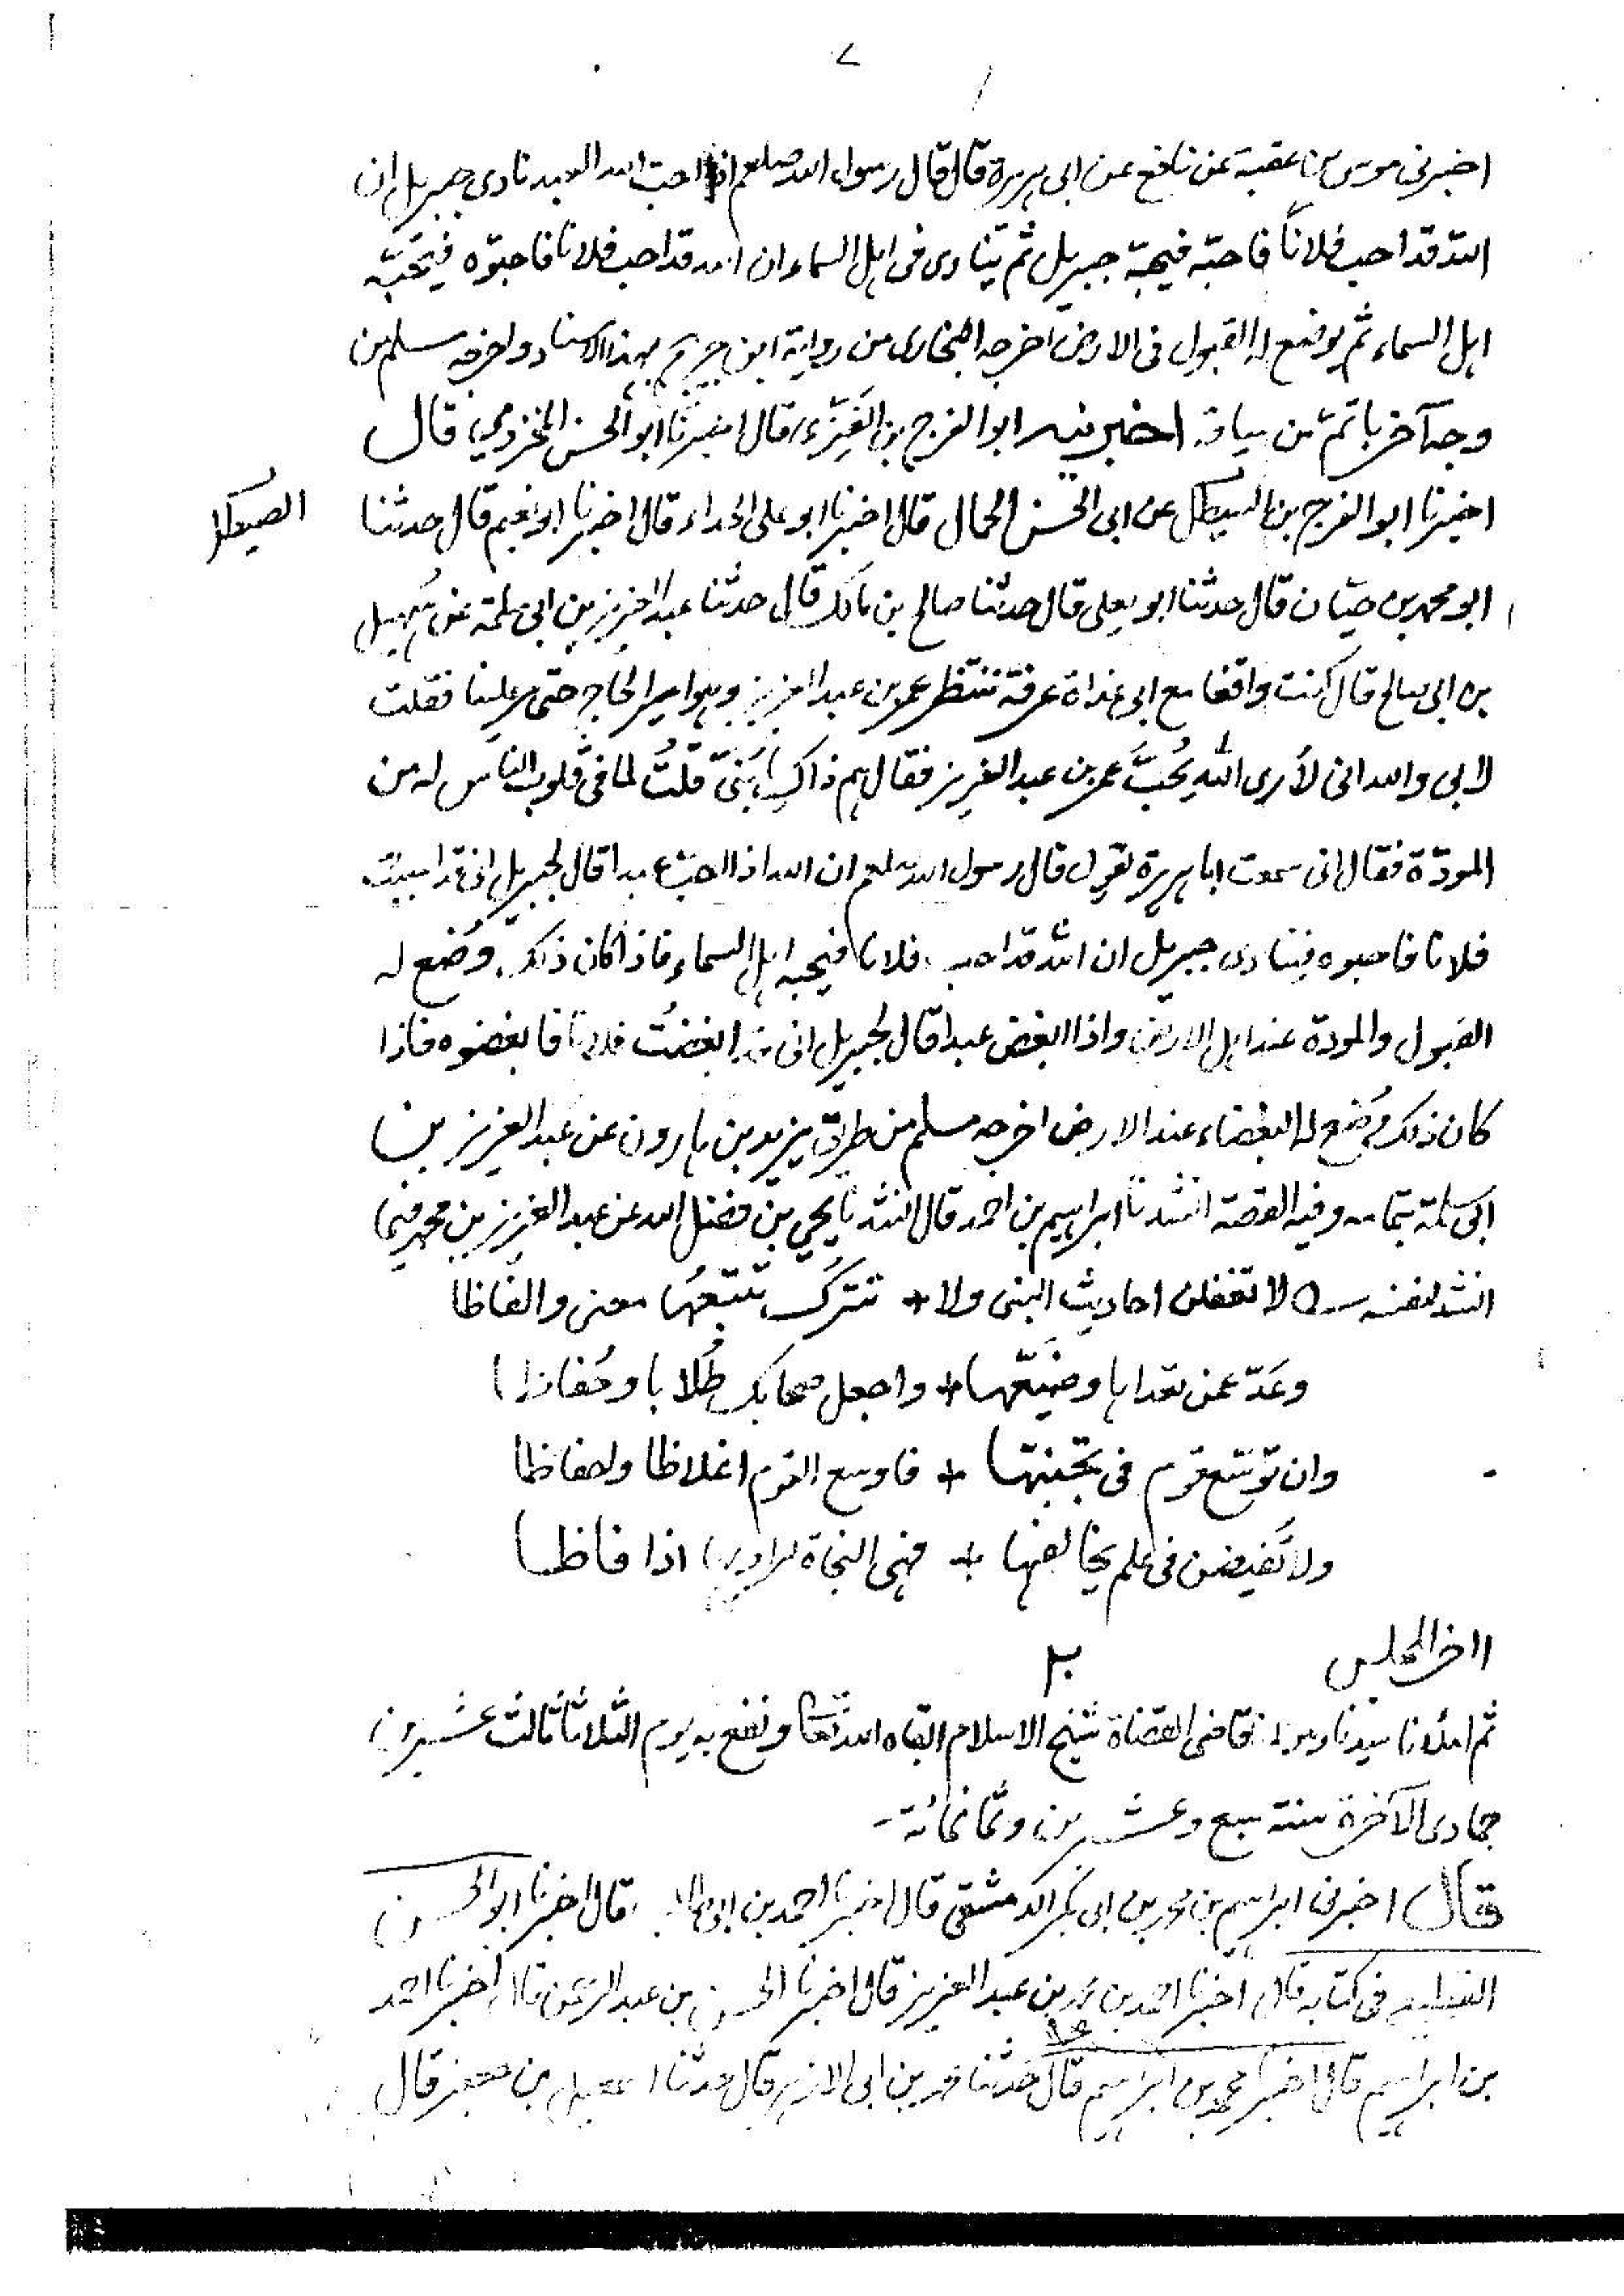 ٧
اخبرنى موسى بن عقبة عن نافع عن ابى هريرة قال قال رسول الله صلعم اذا احب الله العبد نادى جبريل ان
الله قد احب فلاناً فاحبّه فيحبّه جبريل ثم ينادى فى اهل السماء ان الله قد احب فلانا فاحبّوه فيحبّه
اهل السماء ثم يوضع له القبول فى الارض اخرجه البخارى من رواية ابن جريج بهذا الاسناد واخرجه مسلم من
وجه آخر باتمّ من سياقه اخبرنيه ابو الفرج بن الغزّى قال اخبرنا ابو الحسن المخزومي قال
اخبرنا ابو الفرج بن الصيقل عن ابى الحسن الجمال قال اخبرنا ابو على الحداد قال اخبرنا ابو نعيم قال حدثنا
الصيقل
ابو محمد بن حيّان قال حدثنا ابو يعلى قال حدثنا صالح بن مالك قال حدثنا عبد العزيز بن ابى سلمة عن سُهيل
بن ابى صالح قال كنت واقفا مع ابى غداة عرفة ننتظر عمر بن عبد العزيز وهو امير الحاج حتى مر علينا فقلت
لابى والله انى لأرى الله يُحبُّ عمر بن عبد العزيز فقال بم ذاك يا بُنىّ قلتُ لما فى قلوب الناس له من
المودّة فقال انى سمعت ابا هريرة يقول قال رسول الله صلعم ان الله اذا احب عبدا قال لجبريل انى قد احببت
فلانا فاحبوه فينادى جبريل ان الله قد احب فلانا فيحبه اهل السماء فاذا كان ذلك وُضع له
القبول والمودة عند اهل الارض واذا ابغض عبدا قال لجبريل انى قد ابغضتُ فلانا فابغضوه فاذا
كان ذلك وُضع له البغضاء عند الارض اخرجه مسلم من طريق يزيد بن هارون عن عبد العزيز بن
ابى سلمة بتمامه وفيه القصة انشدنا ابراهيم بن احمد قال انشدنا يحيى بن فضل الله عن عبد العزيز بن محمد فيما
انشد لنفسه لا تغفلن احاديث النبى ولا + تترك تتبعُها معنى والفاظا
وعَدّ عمن تعداها وضيّعها + واجعل صحابك طُلابا وحُفاظا
وان توسّع قوم فى تجنبها + فاوسع القوم اغلاظا واحفاظا
ولا تُفيضن فى علم يخالفها + فهى النجاة اذا فاظا
اخر المجلس
٣
ثم املانا سيدنا ومولانا قاضى القضاة شيخ الاسلام ابقاه الله تعا ونفع به يوم الثلاثا ثالث عشرين
جمادى الآخرة سنة سبع وعشرين وثمانمائة
قال اخبرنى ابراهيم بن محمد بن ابى بكر الدمشقى قال اخبرنا احمد بن ابى طالب قال اخبرنا ابو الحسن
القطيعى فى كتابه قال اخبرنا احمد بن محمد بن عبد العزيز قال اخبرنا الحسن بن عبد الرحمن قال اخبرنا احمد
بن ابراهيم قال اخبرنا محمد بن ابراهيم قال حدثنا محمد بن ابى الازهر قال حدثنا اسمعيل بن جعفر قال